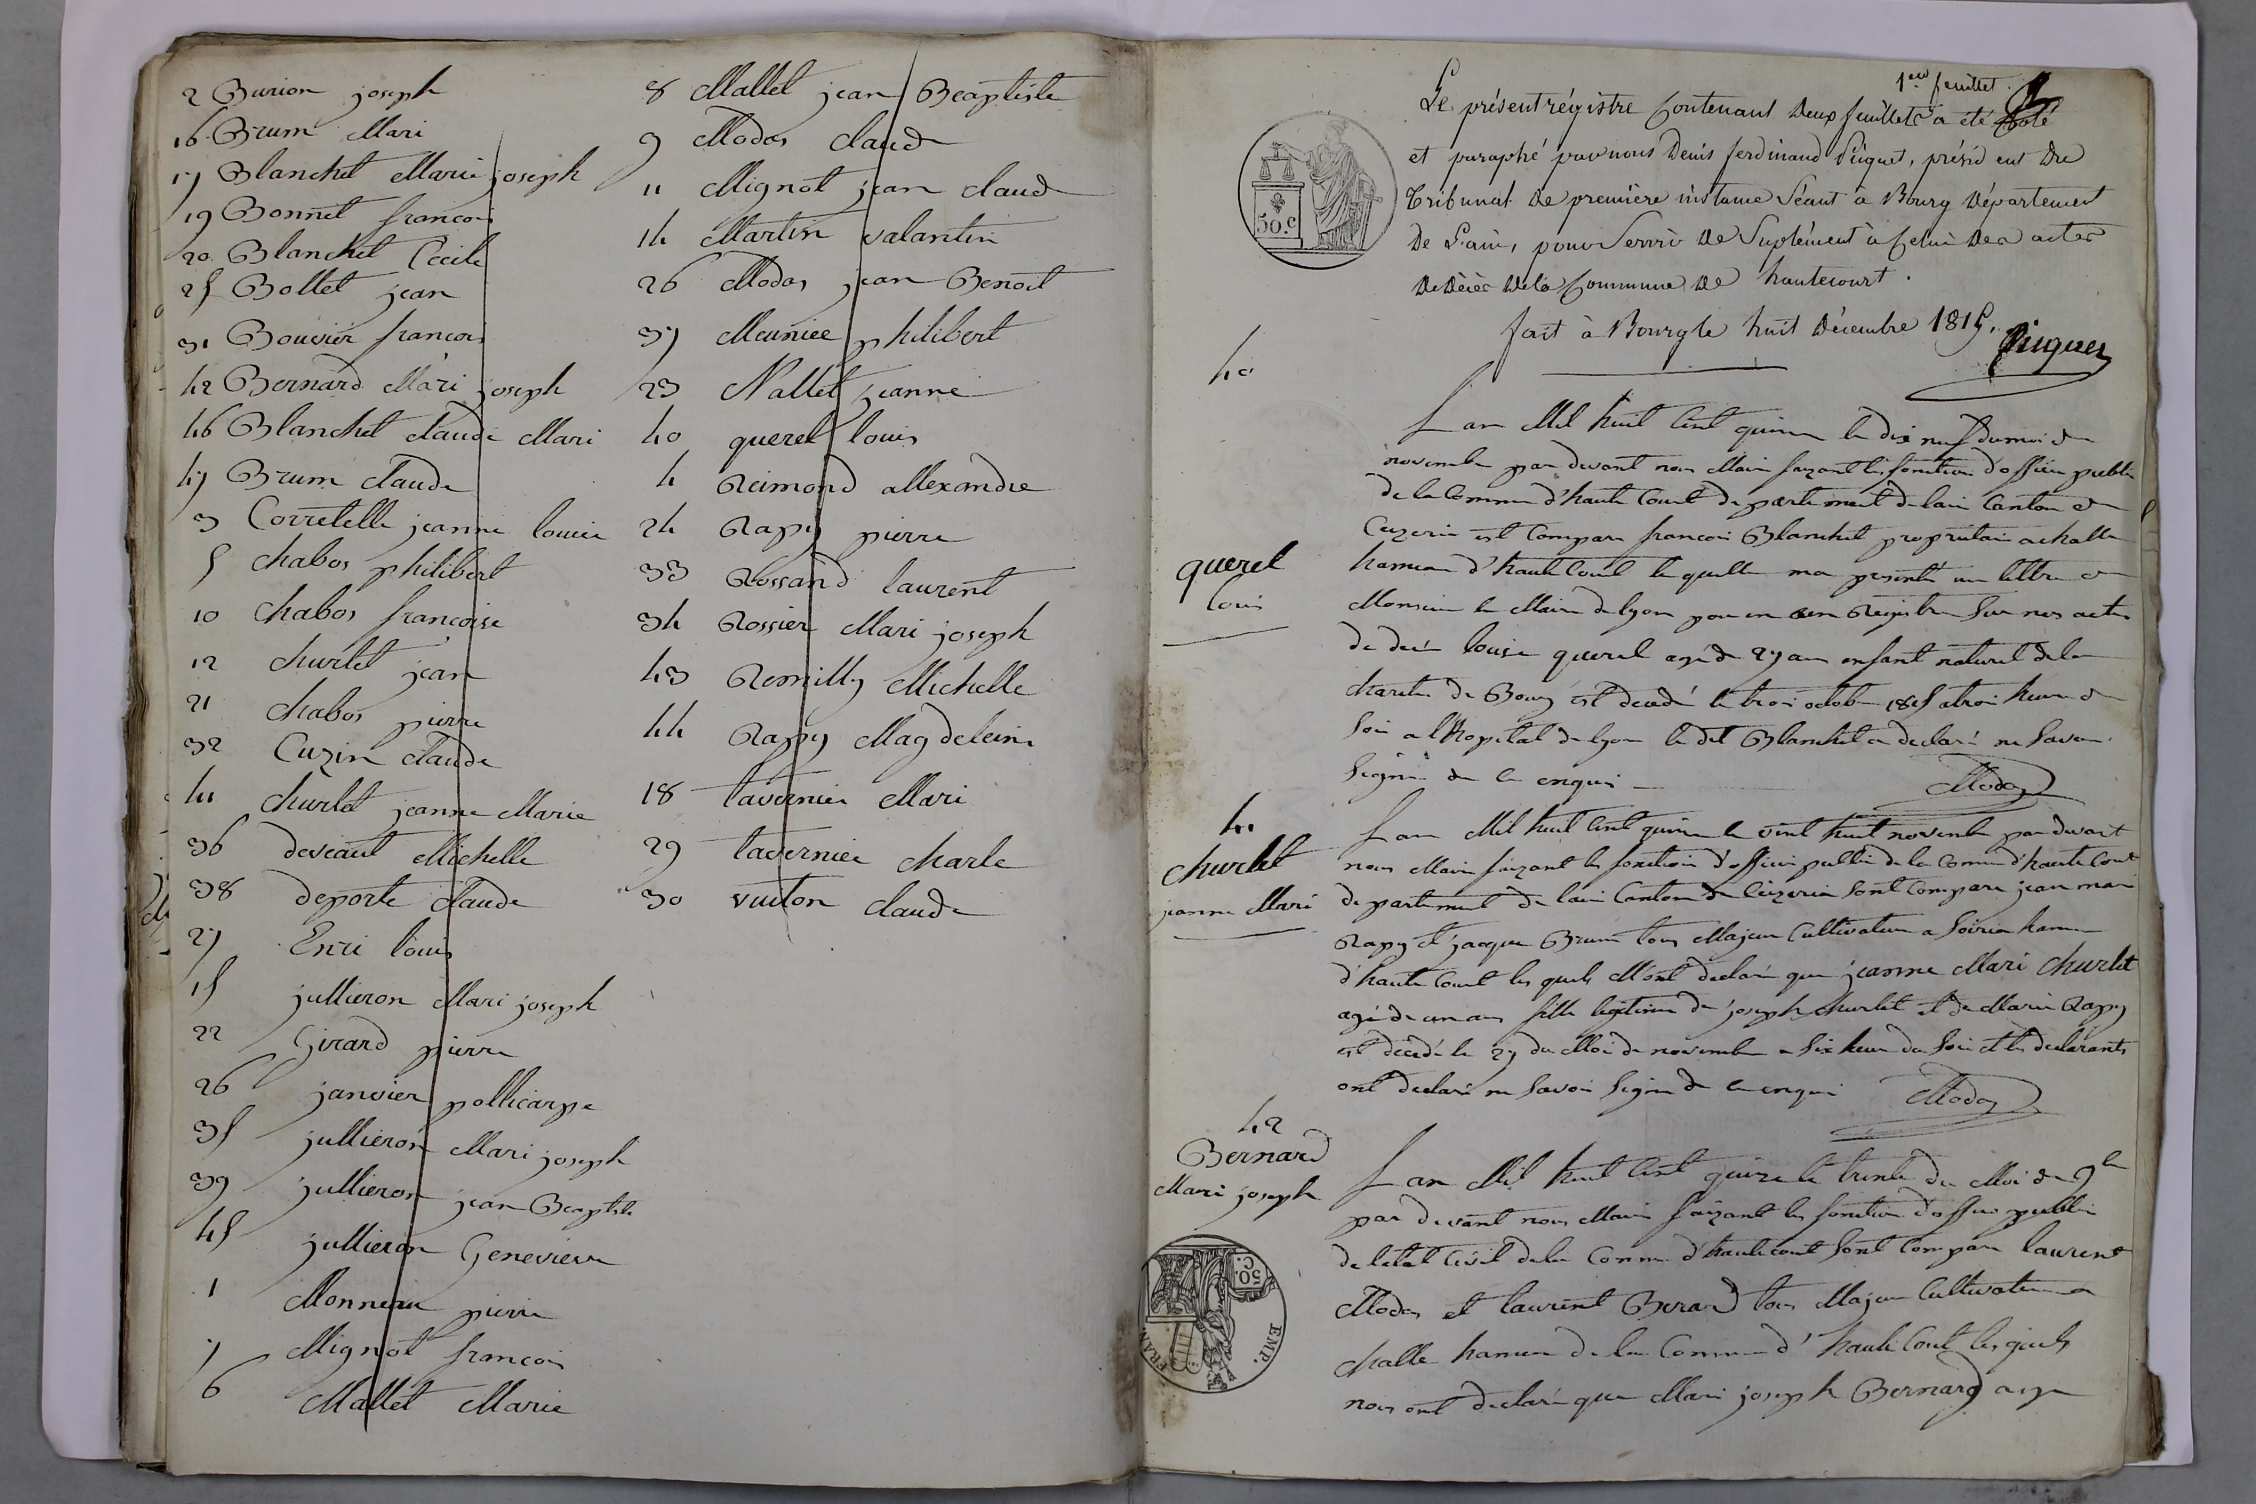 2 Burion joseph
16 Brum Mari
17 Blanchet Marie joseph
19 Bonnet francois
20 Blanchet Cecile
25 Bollet jean
31 Bouvier francois
42 Bernard Mari joseph
46 Blanchet claude Mari
47 Brum claude
3 Corretelle jeanne louise
5 chabos philibert
10 chabos francoise
12 churlet jean
21 chabos pierre
32 Cuzin claude
41 churlet jeanne Marie
36 deveaut Michelle
38 deporte claude
27 Enri louis
15 jullieron Mari joseph
22 Girard pierre
26 janvier pollicarpe
35 jullieron Mari joseph
39 jullieron jean Beaptiste
45 jullieron Genevieve
1 Monnier pierre
7 Mignot francois
6 Mallet Marie
8 Mallet jean Beaptiste
9 Modas claude
11 Mignot jean claude
14 Martin valantin
26 Modas jean Benoit
37 Meunier philibert
23 Nallet jeanne
40 querel louis
4 Reimond allexandre
24 Rapy pierre
33 Rossand laurent
34 Rossier Mari joseph
43 Romilly Michelle
44 Rapy Magdeleine
18 tavernier Mari
29 tavernier charle
30 vuiton claude
1er feuillet
Le présent régistre Contenant Deux feuillets a été Coté
et paraphé par nous Denis ferdinand Piquet, président Du
Tribunal De première instance Séant à Bourg Département
De L'ain, pour Servir De Suplément à Celui Des actes
De Décès De la Commune De hautecourt.
fait à Bourg le huit Décembre 1815.
Piquet
50.c
40
querel
louis
Lan Mil huit Cent quinze le dix neuf du moi de
novembre par devant nous Maire faizant les fonction d'officier public
de la Commune d'haute Court departement de lain Canton de
Ceyzeria est Compare francois Blanchet proprietaire a challe
hameau d'haute Court le quelle ma presenté une lettre de
Monsieur le Maire de lyon pour en Registre Sur nos actes
de decé louis querel agé de 27 ans enfant naturel de la
charité de Bourg est decedé le trois octobre 1815 a trois heure du
Soir a l'Hopital de lyon le dit Blanchet a declaré ne Savoir
Signé de ce enqui
Modas
41
churlet
jeanne Mari
Lan Mil huit Cent quinze le vint huit novembre par devant
nous Maire faizant les fonction d'officier public de la Commune d'haute Court
departement de lain Canton de Ceizeria Sont Compare jean mari
Rapy et jacque Brum tous Majeur Cultivateur a Soiria hameau
d'haute Court les quels M'ont declaré que jeanne Mari churlet
agé de un ans fille legitime de joseph churlet et de Marie Rapy
est decedé le 27 du Moi de novembre a Six heure du Soir et les declarants
ont declaré ne Savoir Signé de ce enqui
Modas
42
Bernard
Mari joseph
Lan Mil huit Cent quinze le trente du Moi de 9bre
par devant nous Maire faizant les fonction d'officier public
de letat Civil de la Commune d'hautecourt Sont Compare laurent
Modas et laurent Berard tous Majeur Cultivateur a
challe hameau de la Commune d'haute Court les quels
nous ont declaré que Mari joseph Bernard agé
50. C.
EMP.
FRAN.